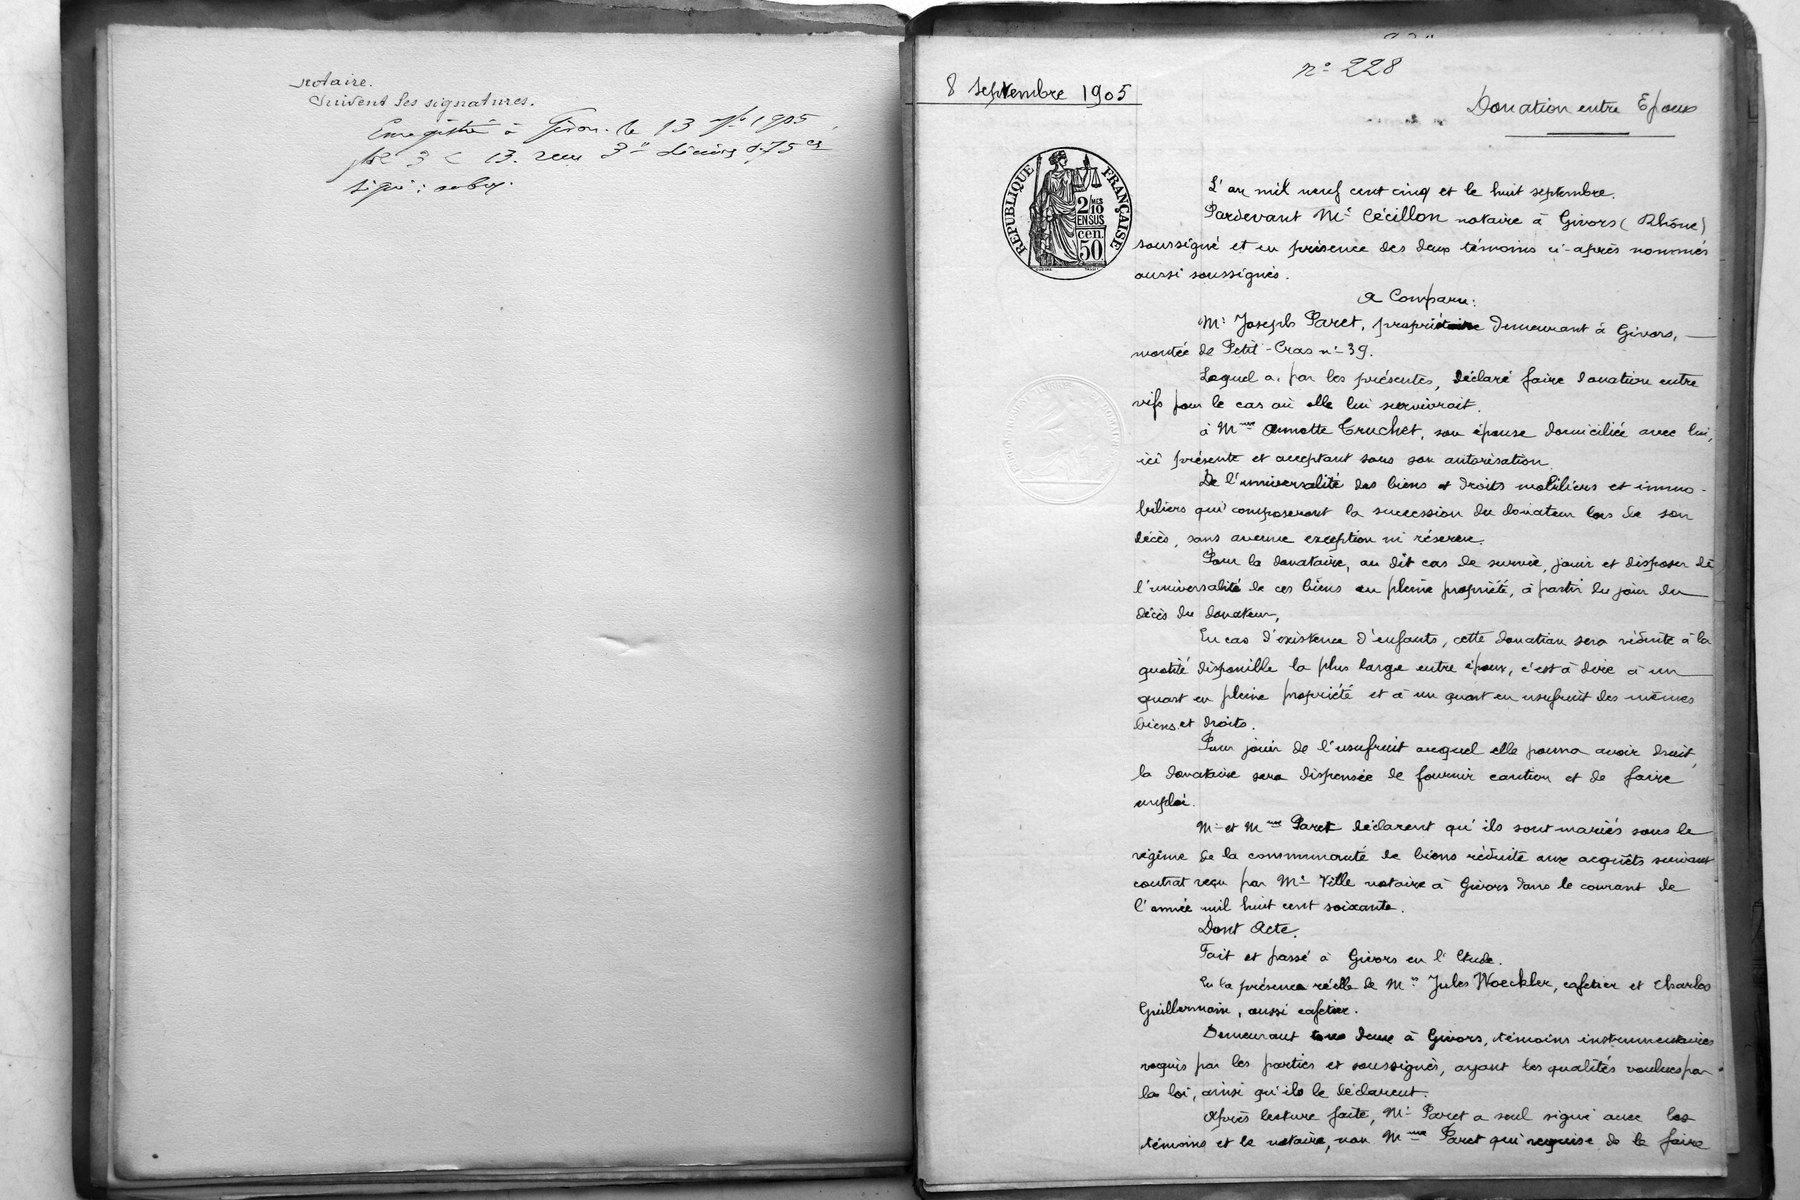 notaire.
Suivent les signatures.
Enregistré à Givors le 13 1905
3 13. reçu 3
signé :
n° 228
8 Septembre 1905
Donation entre Epoux
RÉPUBLIQUE FRANÇAISE
2/10
MES
EN SUS
cen.
50
L'an mil neuf cent cinq et le huit septembre.
Pardevant Me Cécillon notaire à Givors (Rhône)
soussigné et en présence des deux témoins ci-après nommés
aussi soussignés.
A Comparu:
Mr Joseph Paret, propriétaire demeurant à Givors,
montée de Petit-Cras n° 39.
Lequel a, par les présentes, déclaré faire donation entre
vifs pour le cas où elle lui survivrait.
à Mme Annette Truchet, son épouse domiciliée avec lui,
ici présente et acceptant sous son autorisation.
De l'universalité des biens et droits mobiliers et immo-
biliers qui composeront la succession du donateur lors de son
décès, sans aucune exception ni réserve.
Pour la donataire, au dit cas de survie, jouir et disposer de
l'universalité de ces biens en pleine propriété, à partir du jour du
décès du donateur,
En cas d'existence d'enfants, cette donation sera réduite à la
quotité disponible la plus large entre époux, c'est à dire à un
quart en pleine propriété et à un quart en usufruit des mêmes
biens et droits.
Pour jouir de l'usufruit auquel elle pourra avoir droit,
la donataire sera dispensée de fournir caution et de faire
emploi.
Mr et Mme Paret déclarent qu'ils sont mariés sous le
régime de la communauté de biens réduite aux acquêts suivant
contrat reçu par Me Ville notaire à Givors dans le courant de
l'année mil huit cent soixante.
Dont Acte.
Fait et passé à Givors en l'Etude.
En la présence réelle de Mrs Jules Woeckler, cafetier et Charles
Guillermain, aussi cafetier.
Demeurant tous deux à Givors, témoins instrumentaires
requis par les parties et soussignés, ayant les qualités voulues par
la loi, ainsi qu'ils le déclarent.
Après lecture faite, Mr Paret a seul signé avec les
témoins et le notaire, non Mme Paret qui requise de le faire